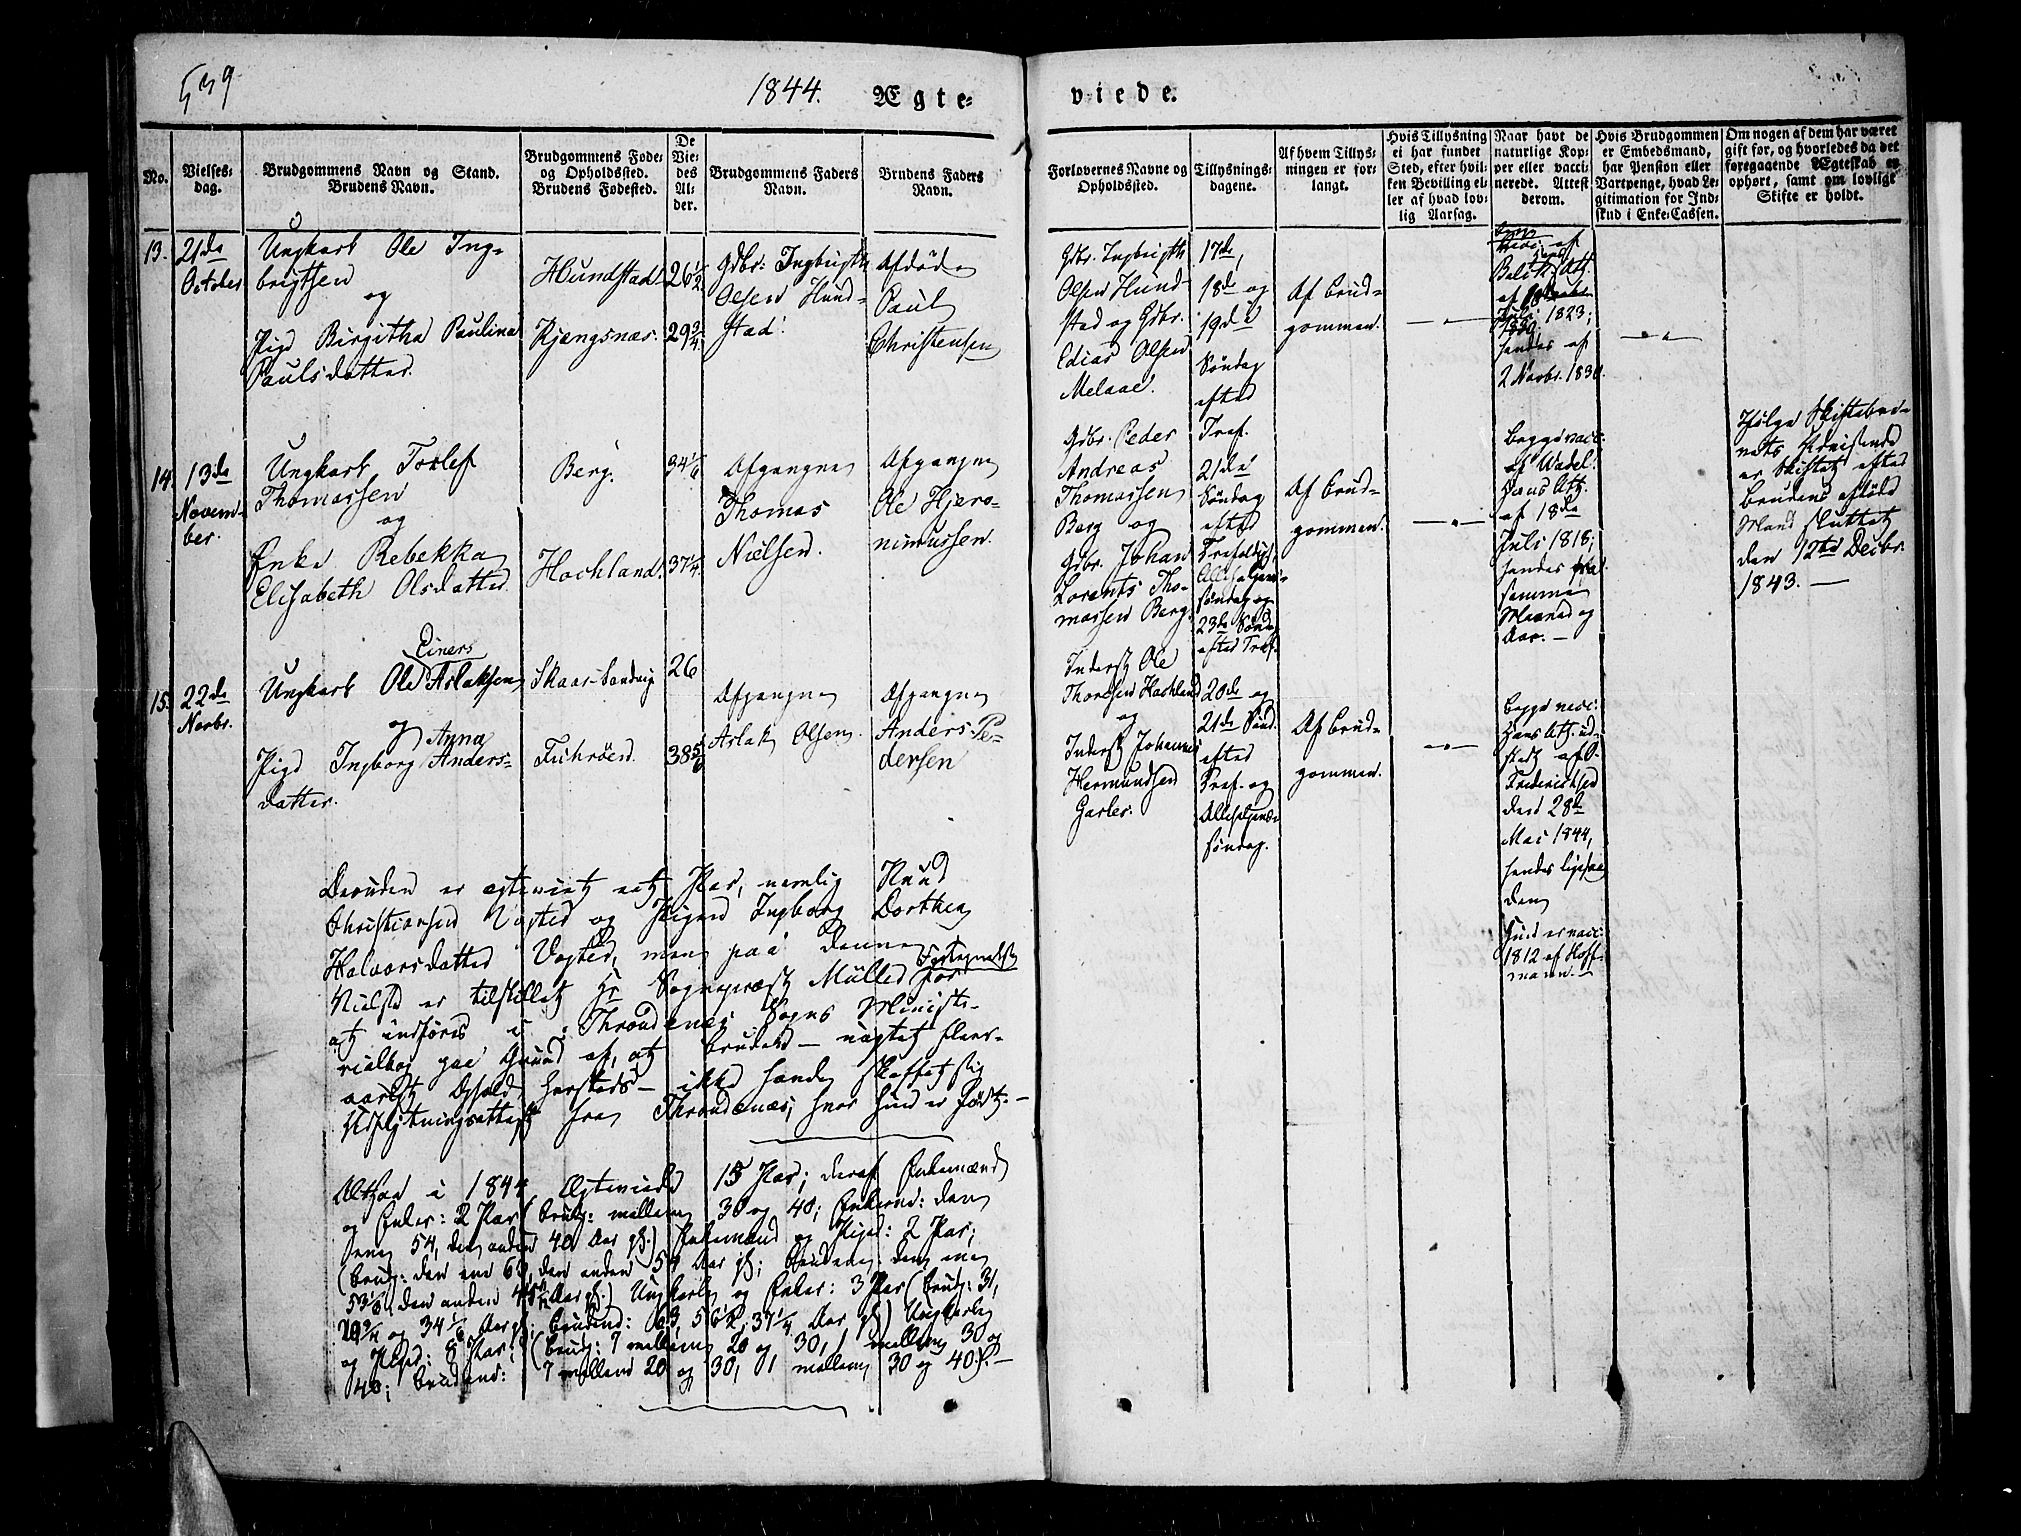 539
1844.
Ægte-
viede.
No.
Vielses-
dag.
Brudgommens Navn og Stand.
Brudens Navn.
Brudgommens Føde-
og Opholdssted.
Brudens Fødested.
De
Vie-
des
Al-
der.
Brudgommens Faders
Navn.
Brudens Faders
Navn.
Forlovernes Navne og
Opholdssted.
Tillysnings-
dagene.
Af hvem Tillys-
ningen er for-
langt.
Hvis Tillysning
ei har fundet
Sted, efter hvil-
ken Bevilling el-
ler af hvad lov-
lig Aarsag.
Naar havt de
naturlige Kop-
per eller vacci-
nerede. Attest
derom.
Hvis Brudgommen
er Embedsmand,
har Pension eller
Vartpenge, hvad Le-
gitimation for Ind-
skud i Enke-Cassen.
Om nogen af dem har været
gift før, og hvorledes da det
foregaaende Ægteskab er
ophørt, samt om lovligt
Skifte er holdt.
13.
21de
October
Ungkarl Ole Ing-
brigtsen
og
Pige Birgitha Paulina
Paulsdatter.
Hundstad
Kjengsnæs.
26 1/2
29 3/4
Gdbr: Ingbrigth
Olsen Hund-
stad.
Afdøde
Paul
Christensen
Gdbr. Ingbrigth
Olsen Hund-
stad og Gdbr.
Edias Olsen
Melaae.
17de,
18de og
19de
Søndag
efter
Tref.
Af Brud-
gommen.
Juli 1823;
hendes af
2 Novbr. 1830.
14.
13de
Novem-
ber.
Ungkarl Torlef
Thomassen
og
Enke Rebekka
Elisabeth Olsdatter.
Berg.
Hochland.
34 1/6
37 1/4
Afgangne
Thomas
Nielsen.
Afgangne
Ole Hjero-
nimussen.
Gdbr. Peder
Andreas
Thomassen
Berg og
Gdbr. Johan
Lorents Tho-
massen Berg.
21de
Søndag
efter
Trefoldigh.
Allehelgens-
søndag og
23de Sønd.
efter Tref.
Af Brud-
gommen.
Begge vacc:
af Wadel.
Hans Att.
af 18de
Juli 1818;
hendes fra
samme
Maaned og
Aar. —
Ifølge Skiftebre-
vets Udvisende
er Skiftet efter
Brudens afdøde
Mand sluttet
den 12te Decbr.
1843. —
15.
22de
Novbr.
Ungkarl Ole Einers Aslaksen
og
Pige Ingborg Anna Anders-
datter.
Skaar-Sandvig
Fuhrøen.
26
38 5/6
Afgangne
Aslak Olsen.
Afgangne
Anders Pe-
dersen
Inderst Ole
Thoresen Hochland
og
Inderst Johannes
Hermundsen
Garles.
20de og
21de Sønd.
efter
Tref. og
Allehelgens-
søndag.
Af Brud-
gommen.
Begge vacc:
Hans Att. ud-
stedt af
Frederichsen
den 28de
Mai 1844,
hendes ligesaa
den
Hun er vacc:
1812 af Hoff-
mann. —
Desuden er egteviet et Par, nemlig Knud
Christiansen Vogter og Pigen Ingborg Dorthea
Halvorsdatter Vogter, men paa denne
Vielse er tilstillet Hr Sogneprest Müller Fortegnelse for
at indføres i Throndenæs Sogns Ministe-
rialbog paa Grund af, at Bruden — uagtet fleer-
aarigt Ophold hersteds — ikke havde skaffet sig
Udflytningsattest fra Throndenæs, hvor hun er født. —
Altsaa i 1844 Egteviede 15 Par; deraf Enkemænd
og Enker: 2 Par (Brudg: mellem 30 og 40; Enkerne: den
ene 54, den anden 40 Aar gl.) Enkemænd og Piger: 2 Par;
(Brudg: den ene 63, den anden 54 Aar gl; Brudene: den ene
53 1/6, den anden 45 Aar gl.) Ungkarle og Enker: 3 Par (Brudg: 31,
29 3/4 og 34 1/6 Aar gl; Brudene: 63, 56 1/2, 37 1/4 Aar gl) Ungkarle
og Piger: 8 Par; (Brudg: 7 mellem 20 og 30, 1 mellem 30 og
40; Brudene: 7 mellem 20 og 30, 1 mellem 30 og 40). —